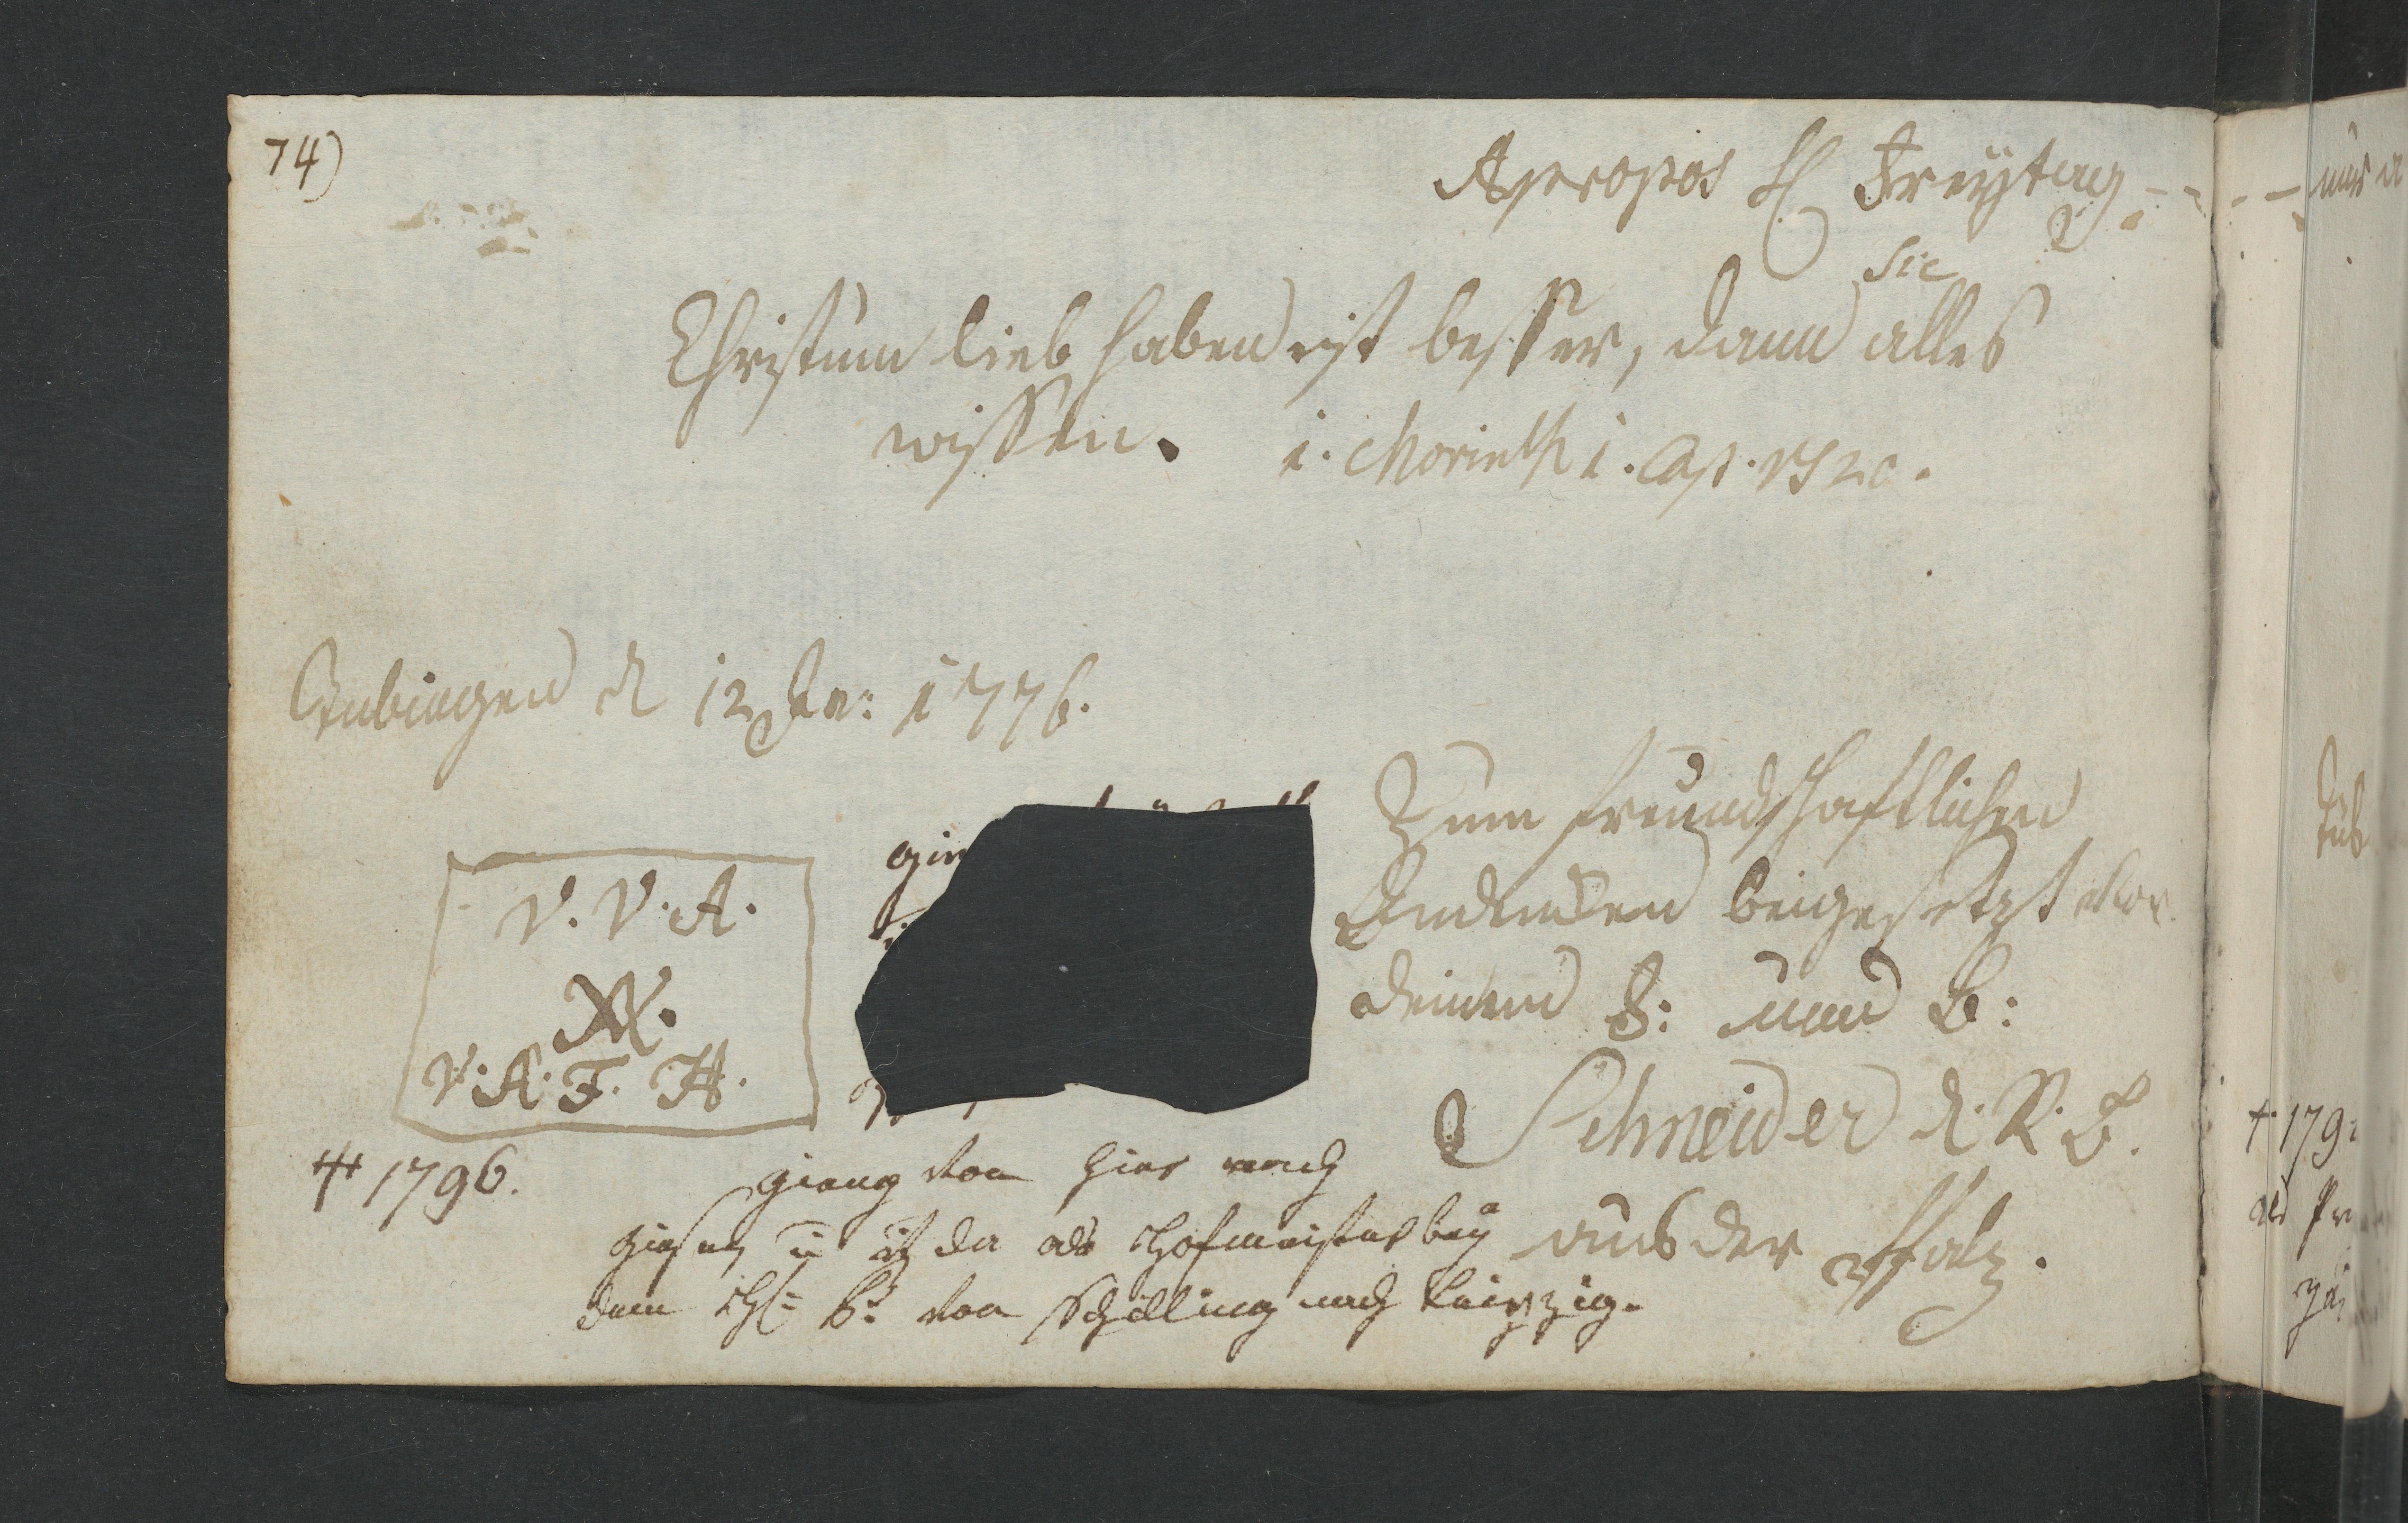 74)
Apropos H Freytag - - - -
sic
Christum lieb haben ist besser, dann alles
wissen. 1. Corinth 1. Cap. V 20.
Tubingen d 12 Ja: 1776.
Zum freundschaftlichen
Andencken beigesetzt von
deinem F: und B:
Schneider d. R. B.
aus der Pfalz.
V. V. A.
V. A. F. H.
gin
† 1796.
gieng von hier nach
giesen u von da als Hofmeister bey
dem H: B: von Schilling nach Leipzig.
Tub
† 179
als Pr